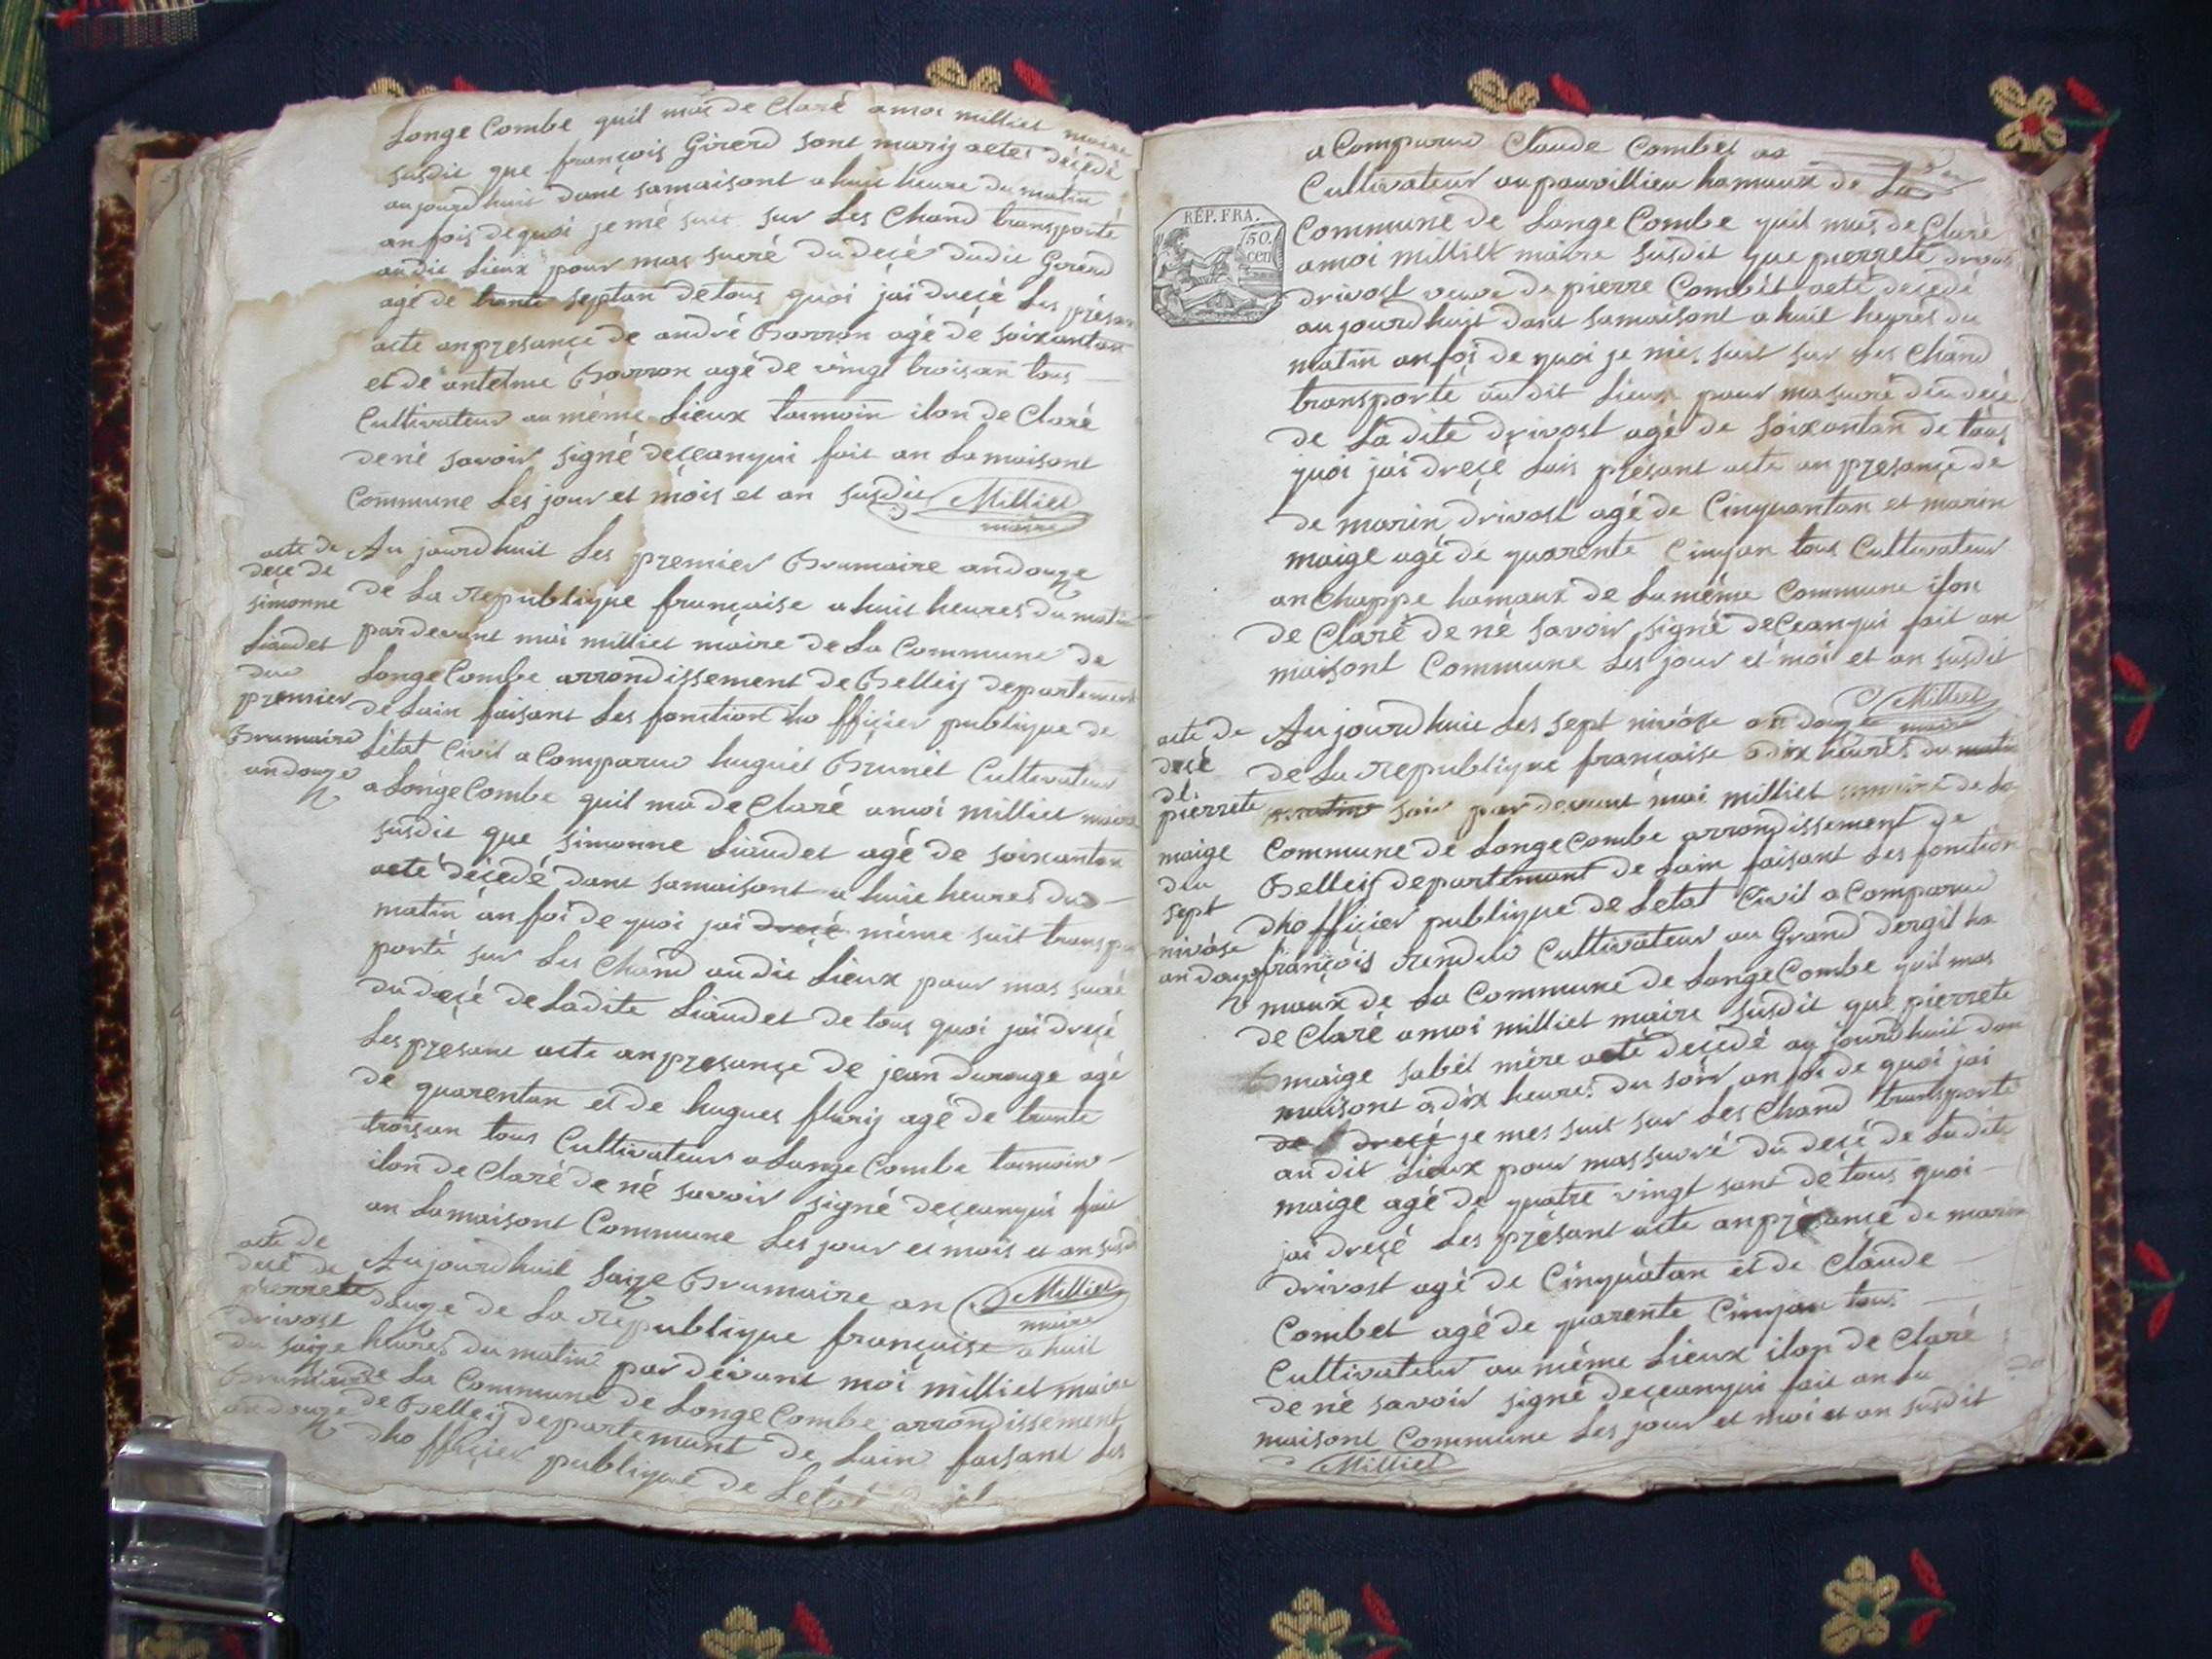 Longe Combe quil mas de Claré amoi milliet maire
susdit que françois Girerd sont marij aeté décédé
aujourdhuit dans samaisont a huit heure du matin
anfois dequoi je mé suit sur Les Chand transporté
audit Lieux pour mas suré du desé dudit Girerd
agé de trante septan detous quoi jai dresé Les présan
acte anpresançe de andré Barron agé de soixantan
et de antelme Barron agé de vingt troisan tous
Cultivateur au même Lieux tarmoin ilon de Claré
dené savoir signé deçeanqui fait an Lamaisont
Commune Les jour et mois et an susdit Milliet
maire
acte de
deçe de
simonne
Liaudet
du
premier
Brumaire
andouze
Au jourdhuit Les premier Brumaire andouze
de La republique française a huit heures du matin
pardevant moi milliet maire de La Commune de
Longe Combe arrondissement de Belleij departement
de Lain faisant Les fonction dho fficier publique de
Létat Civil a Comparu huguet Brunet Cultivateur
a Longe Combe quil ma de Claré amoi milliet maire
susdit que simonne Liaudet agé de soixantan
aeté décédé dant samaisont a huit heures du
matin anfoi de quoi jai dresé même suit transpor
porté sur Les Chand audit Lieux pour mas suré
du deçé de Ladite Liaudet de tous quoi jai dreçé
Les presant acte anpresançe de jean durouge agé
de quarentan et de hugues flurij agé de trante
troisan tous Cultivateur a Longe Combe tarmoin
ilon de Claré de né savoir signé deçeanqui fait
an Lamaisont Commune Les jour et mois et an susdit
Milliet
maire
acte de
deçé de
pierrete
drivost
du saize
Brumaire
andouze
Aujourdhuit saize Brumaire an
douze de La republique française a huit
heures du matin par devant moi milliet maire
de La Commune de Longe Combe arrondissement
de Belleij departemant de Lain faisant Les
dho fficier publique de Letat
a Comparu Claude Combet
Cultivateur aupouvillieu hamaux de La
RÉP. FRA.
50.
cen
Commune de Longe Combe quil mas de Claré
amoi milliet maire susdit que pierreté drivos
drivost veuve de pierre Combét aeté decedé
aujourdhuit dant samaisont a huit heurés du
matin anfoi de quoi je més suit sur Les Chand
transporté audit Lieux pour masuré du deçé
de Ladite drivost agé de soixantan de tous
quoi jai dreçé Lais présant acte anpresançe de
de marin drivost agé de Cinquantan et marin
maige agé de quarente Cinqan tous Cultivateur
an Chappe hamaux de Lamême Commune ilon
de Claré de né savoir signé deCeanqui fait an
maisont Commune Les jour et moi et an susdit
Milliet
maire
acte de
deçé
de
pierrete
maige
du
sept
nivôse
andouze
Aujourdhuit Les sept nivôse an douze
de La republique française adix heurés du matin
matin soir par devant moi milliet maire de La
Commune de Longe Combe arrondissement de
Belleij departemant de Lain faisant Les fonction
dho fficier publique de Letat Civil a Comparu
françois rendu Cultivateur au Grand dergit ha
maux de La Commune de Longe Combe quil mas
de Claré amoi milliet maire susdit que pierrete
maige sabél mére aeté deçedé au jourdhuit dan
maisont adix heures du soir anfoi de quoi jai
de dreçé je mes suit sur Les Chand transporté
au dit Lieux pour massuré du deçé de Ladite
maige agé de quatre vingt sant de tous quoi
jai dreçé Les présant acte anpresançe de marin
drivost agé de Cinquatan et de Claude
Combet agé de quarente Cinqan tous
Cultivateur au même Lieux ilon de Claré
de né savoir signé deçeanqui fait an La
maisont Commune Les jour et moi et an susdit
Milliet